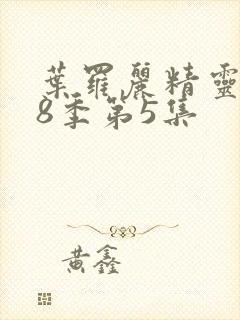 葉羅麗精靈
8季第5集
黃鑫